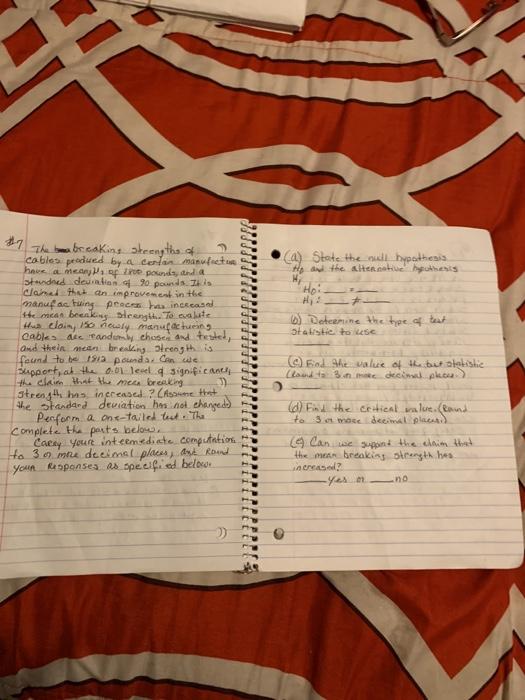 #7 The breaking strengths of
cables produced by a certain manufacture
have a mean, μ, of 1800 pounds, and a
standard deviation of 90 pounds. It is
claimed that an improvement in the
manufacturing process has increased
the mean breaking strength. To evalute
this claim, 150 newly manufacturing
cables are randomly chosen and tested,
and their mean breaking strength is
found to be 1812 pounds. Can we
support, at the 0.01 level of significance,
the claim that the mean breaking
strength has increased? (Assume that
the standard deviation has not changed)
Perform a one-tailed test. The
complete the parts below.
Carey your intermediate computations
to 3 or more decimal places, and Round
your Responses as specified below.
(a) State the null hypothesis
H₀ and the alternative hypothesis
H₁
H₀: __ = __
H₁: __ ≠ __
(b) Determine the type of test
statistic to use
(c) Find the value of the test statistic
(Round to 3 or more decimal places.)
(d) Find the critical value. (Round
to 3 or more decimal places.)
(e) Can we support the claim that
the mean breaking strength has
increased?
__yes or __no